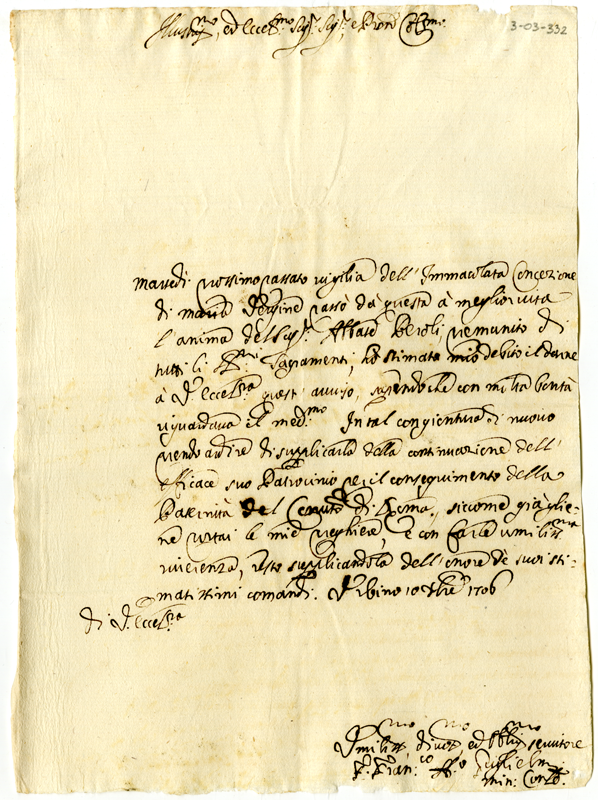 3-03-332
Illustr.mo, ed Ecce.mo Sig.r Sig.r, e Pron
Martedì prossimo passato vigilia dell' Immacolata Concezione
di Maria Vergine passò da questa à meglior vita
l'anima del Sig.r Abbate Beroli premunito di
tutti li Sagramenti, hò stimato mio debito il darne
à V. Ecce.za quest' avviso, sapendo che con molta bontà
riguardava il med.mo In tal congiontura di nuovo
prendo ardire di supplicarla della continuazione dell'
efficace suo Patrocinio per il conseguimento della
del di Roma, siccome già glie-
ne portai le mie preghiere, e con farle umiliss.ma
riverenza, resto supplicandola dell'onore de suoi sti-
matissimi comandi. Urbino 10 Xbre 1706
di V. Ecce.za
Umiliss.mo, divot.mo, ed Obblig.mo servitore
F. Fran.co Guglielmi
min. Con.